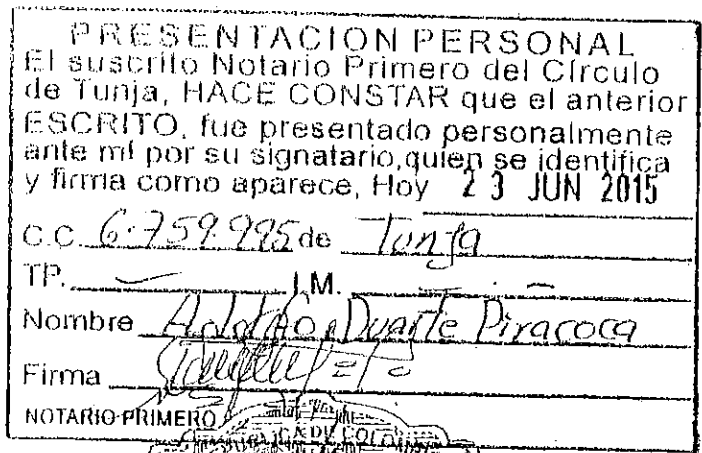 PRESENTACION PERSONAL
El suscrito Notario Primero del Círculo
de Tunja, HACE CONSTAR que el anterior
ESCRITO, fue presentado personalmente
ante mí por su signatario, quien se identifica
y firma como aparece, Hoy 23 JUN 2015
C.C. 6.759.995 de Tunja
TP. — I.M. —
Nombre Duarte Piracoca
Firma
NOTARIO PRIMERO